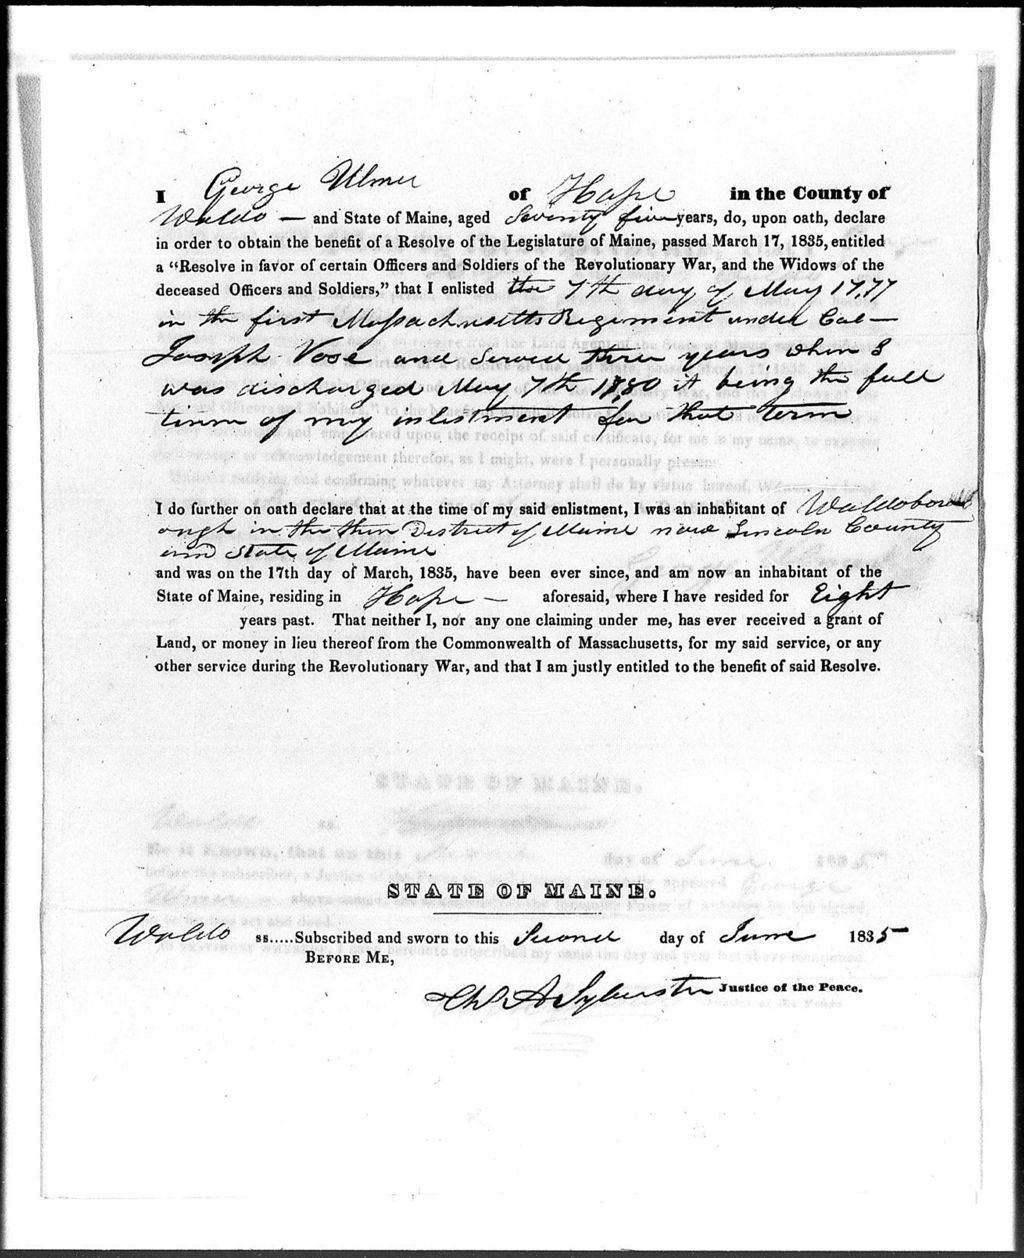 I George Ulmer of Hope in the County of
Waldo — and State of Maine, aged Seventy five years, do, upon oath, declare
in order to obtain the benefit of a Resolve of the Legislature of Maine, passed March 17, 1835, entitled
a “Resolve in favor of certain Officers and Soldiers of the Revolutionary War, and the Widows of the
deceased Officers and Soldiers,” that I enlisted the 7th day of May 1777
in the first Massachusetts Regiment under Col—
Joseph Vose and Served three years when I
was discharged May 7th 1780 it being the full
time of my inlistment for that term
I do further on oath declare that at the time of my said enlistment, I was an inhabitant of Waldobor
ough in the then District of Maine now Lincoln County
and State of Maine
and was on the 17th day of March, 1835, have been ever since, and am now an inhabitant of the
State of Maine, residing in Hope — aforesaid, where I have resided for Eight
years past. That neither I, nor any one claiming under me, has ever received a grant of
Land, or money in lieu thereof from the Commonwealth of Massachusetts, for my said service, or any
other service during the Revolutionary War, and that I am justly entitled to the benefit of said Resolve.
STATE OF MAINE.
Waldo ss.....Subscribed and sworn to this Second day of June 1835
BEFORE ME,
Ch A Sylvester Justice of the Peace.